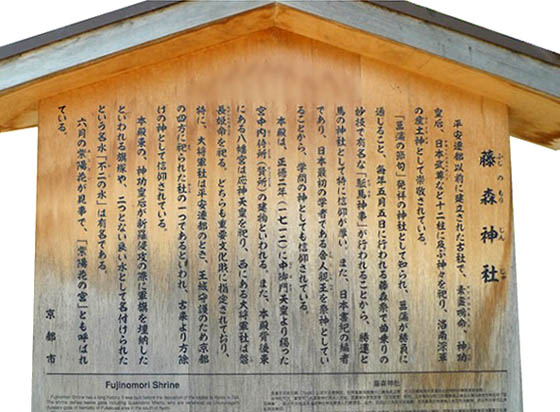 藤森神社
平安遷都以前に建立された古社で、素盞鳴命、神功
皇后、日本武尊など十二柱に及ぶ神々を祀り、洛南深草
の産土神として崇敬されている。
「菖蒲の節句」発祥の神社として知られ、菖蒲が勝負に
通じること、毎年五月五日に行われる藤森祭で曲乗りの
妙技で有名な「駈馬神事」が行われることから、勝運と
馬の神社として特に信仰が厚い。また、日本書紀の編者
であり、日本最初の学者である舎人親王を祭神としてい
ることから、学問の神としても信仰されている。
本殿は、正徳二年（一七一二）に中御門天皇より賜った
宮中内侍所（賢所）の建物といわれる。また、本殿背後東
にある八幡宮は応神天皇を祀り、西にある大将軍社は磐
長姫命を祀る。どちらも重要文化財に指定されており、
特に、大将軍社は平安遷都のとき、王城守護のため京都
の四方に祀られた社の一つであるといわれ、古来より方除
けの神として信仰されている。
本殿東の、神功皇后が新羅侵攻の際に軍旗を埋納した
といわれる旗塚や、二つとない良い水として名付けられた
という名水「不二の水」は有名である。
六月の紫陽花が見事で、「紫陽花の宮」とも呼ばれ
ている。
京都市
Fujinomori Shrine
藤森神社